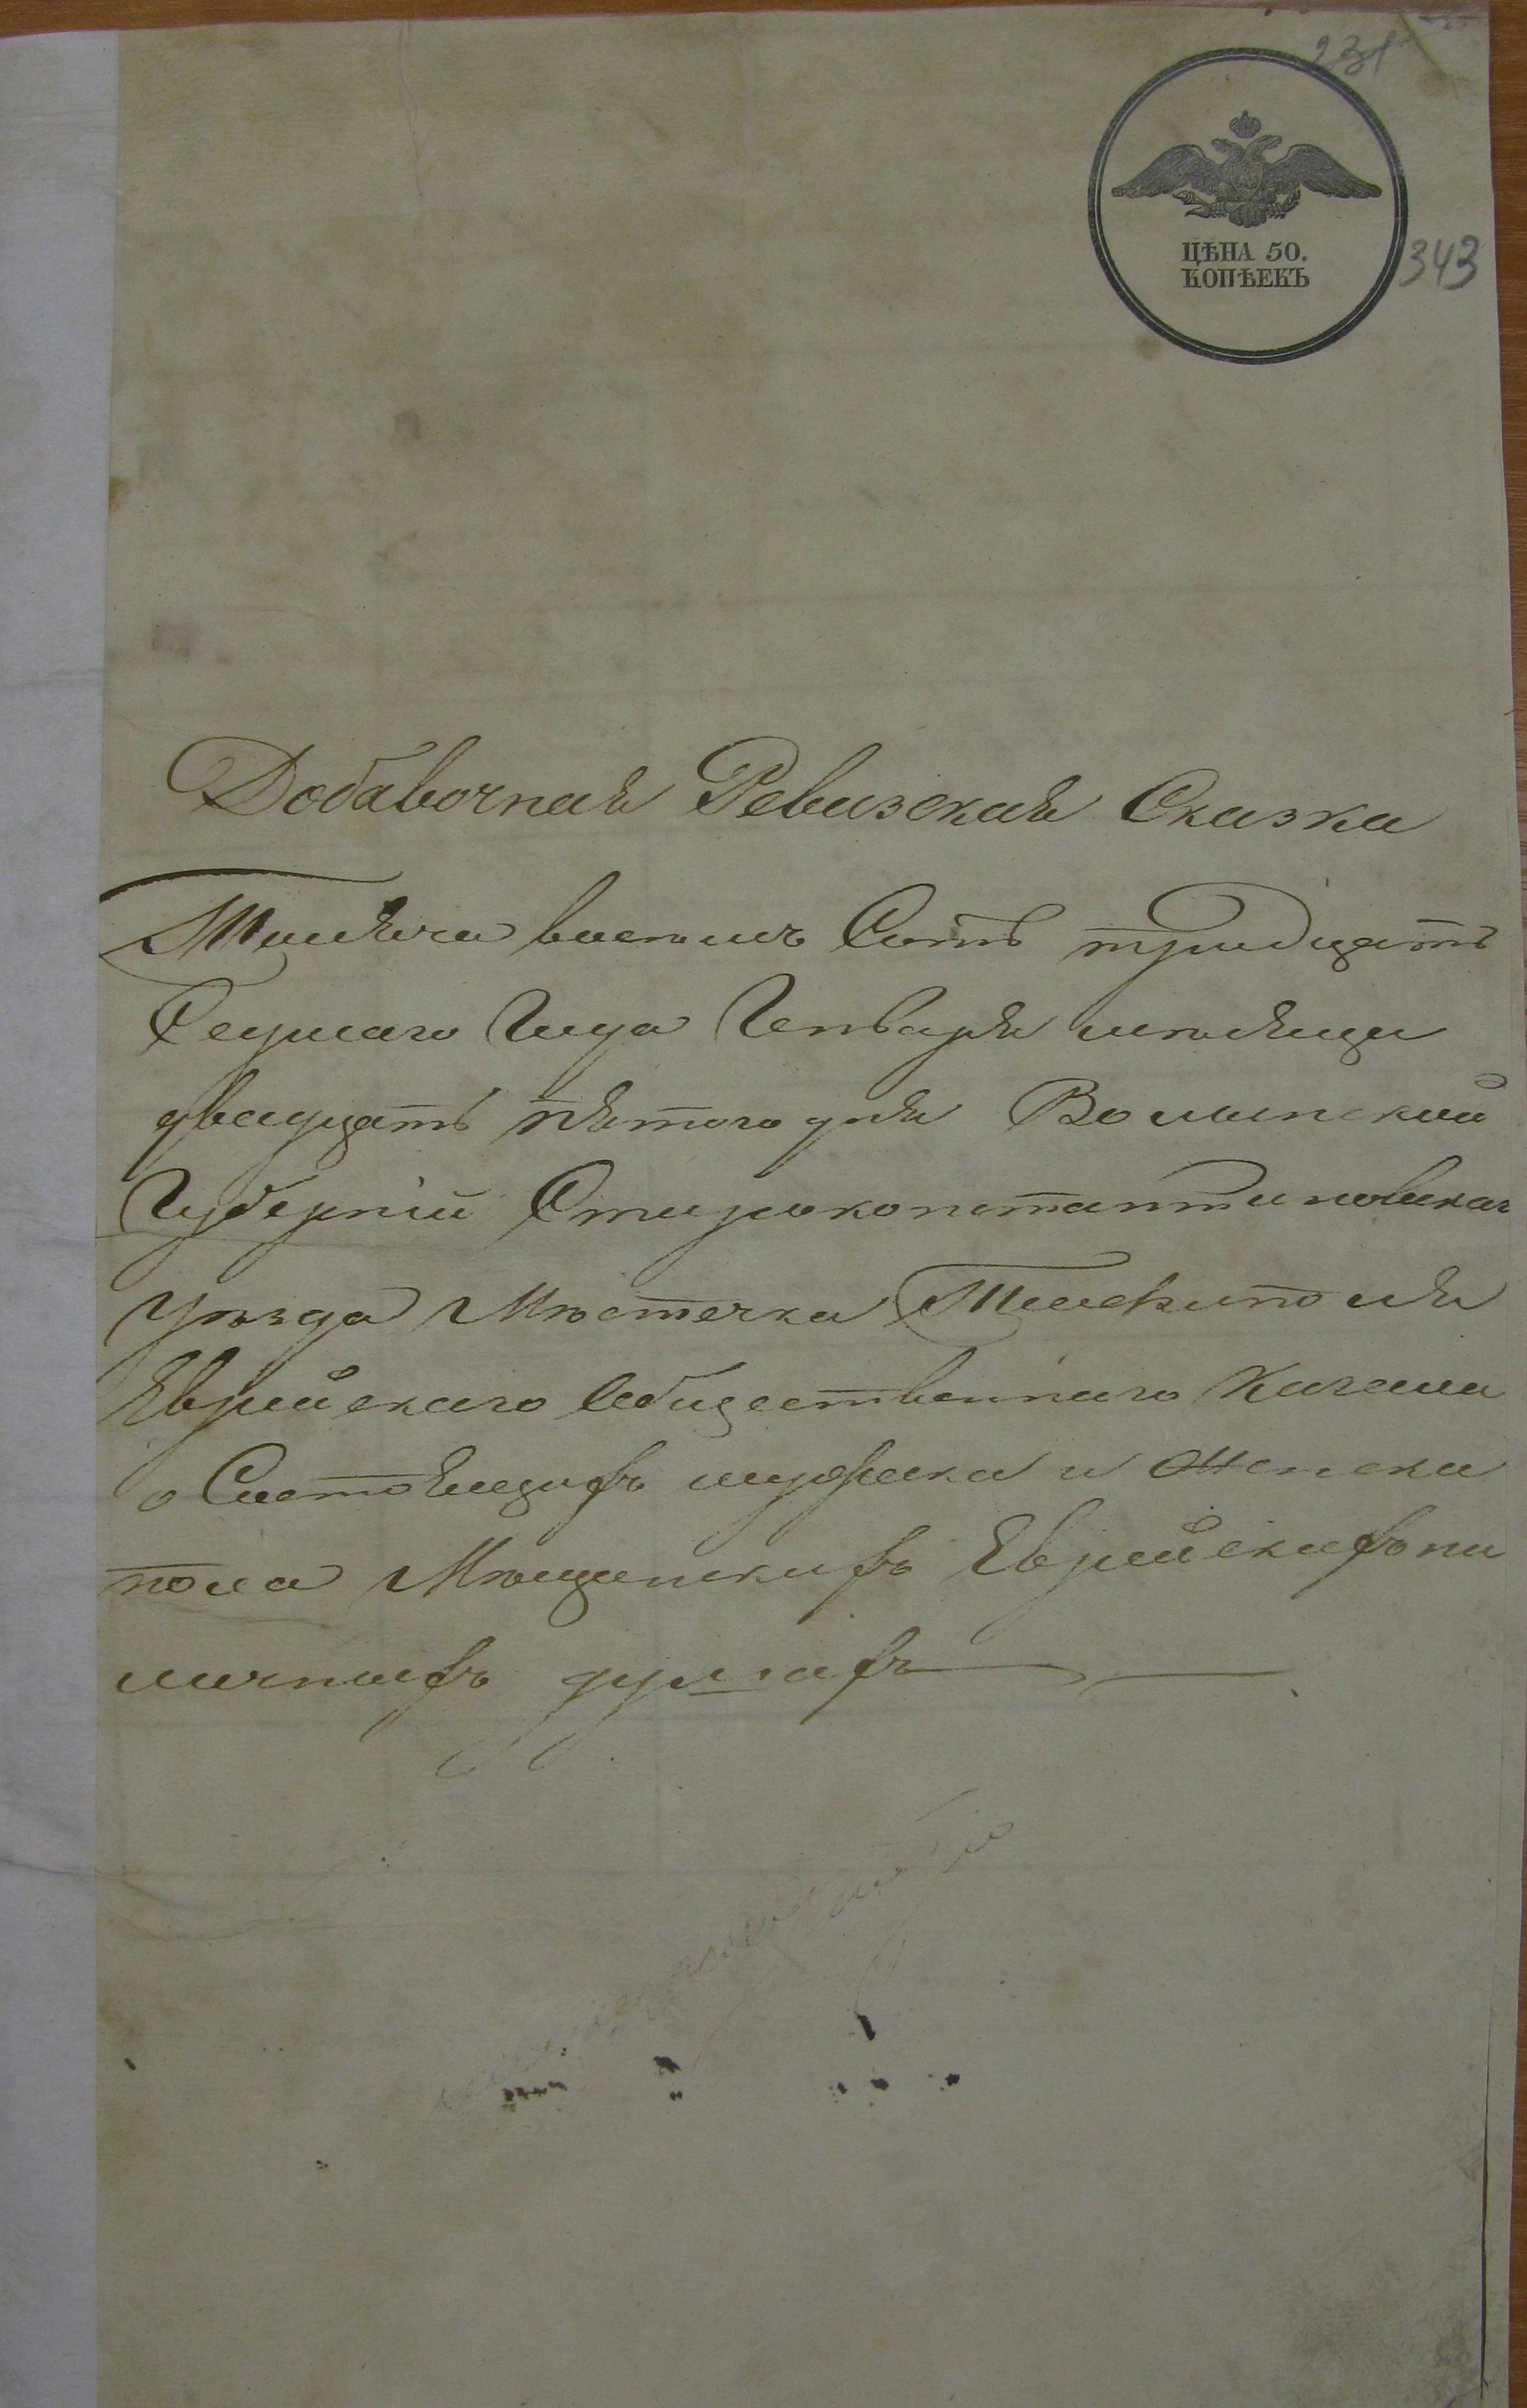 231
ЦѢНА 50.
КОПѢЕКЪ
343
Добавочная Ревизская Сказка
Тысяча восемь Сотъ тридцать
Седмаго Года Генваря мѣсяца
двадцать пятого дня Волынской
Губерніи Староконстантиновскаг
Уѣзда Мѣстечка Теофиполя
Еврейскаго Общественнаго Кагала
о Состоящихъ мужска и женска
пола Мѣщанскихъ Еврейскихъ на
личныхъ душахъ